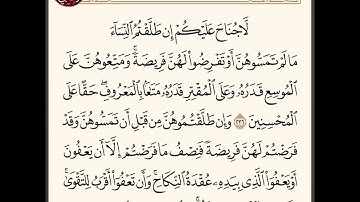 لَّا جُنَاحَ عَلَيْكُمْ إِن طَلَّقْتُمُ ٱلنِّسَآءَ
مَا لَمْ تَمَسُّوهُنَّ أَوْ تَفْرِضُوا۟ لَهُنَّ فَرِيضَةًۚ وَمَتِّعُوهُنَّ عَلَى
ٱلْمُوسِعِ قَدَرُهُۥ وَعَلَى ٱلْمُقْتِرِ قَدَرُهُۥ مَتَٰعًۢا بِٱلْمَعْرُوفِۖ حَقًّا عَلَى
ٱلْمُحْسِنِينَ ٢٣٦ وَإِن طَلَّقْتُمُوهُنَّ مِن قَبْلِ أَن تَمَسُّوهُنَّ وَقَدْ
فَرَضْتُمْ لَهُنَّ فَرِيضَةً فَنِصْفُ مَا فَرَضْتُمْ إِلَّآ أَن يَعْفُونَ
أَوْ يَعْفُوَا۟ ٱلَّذِى بِيَدِهِۦ عُقْدَةُ ٱلنِّكَاحِۚ وَأَن تَعْفُوٓا۟ أَقْرَبُ لِلتَّقْوَىٰۚ